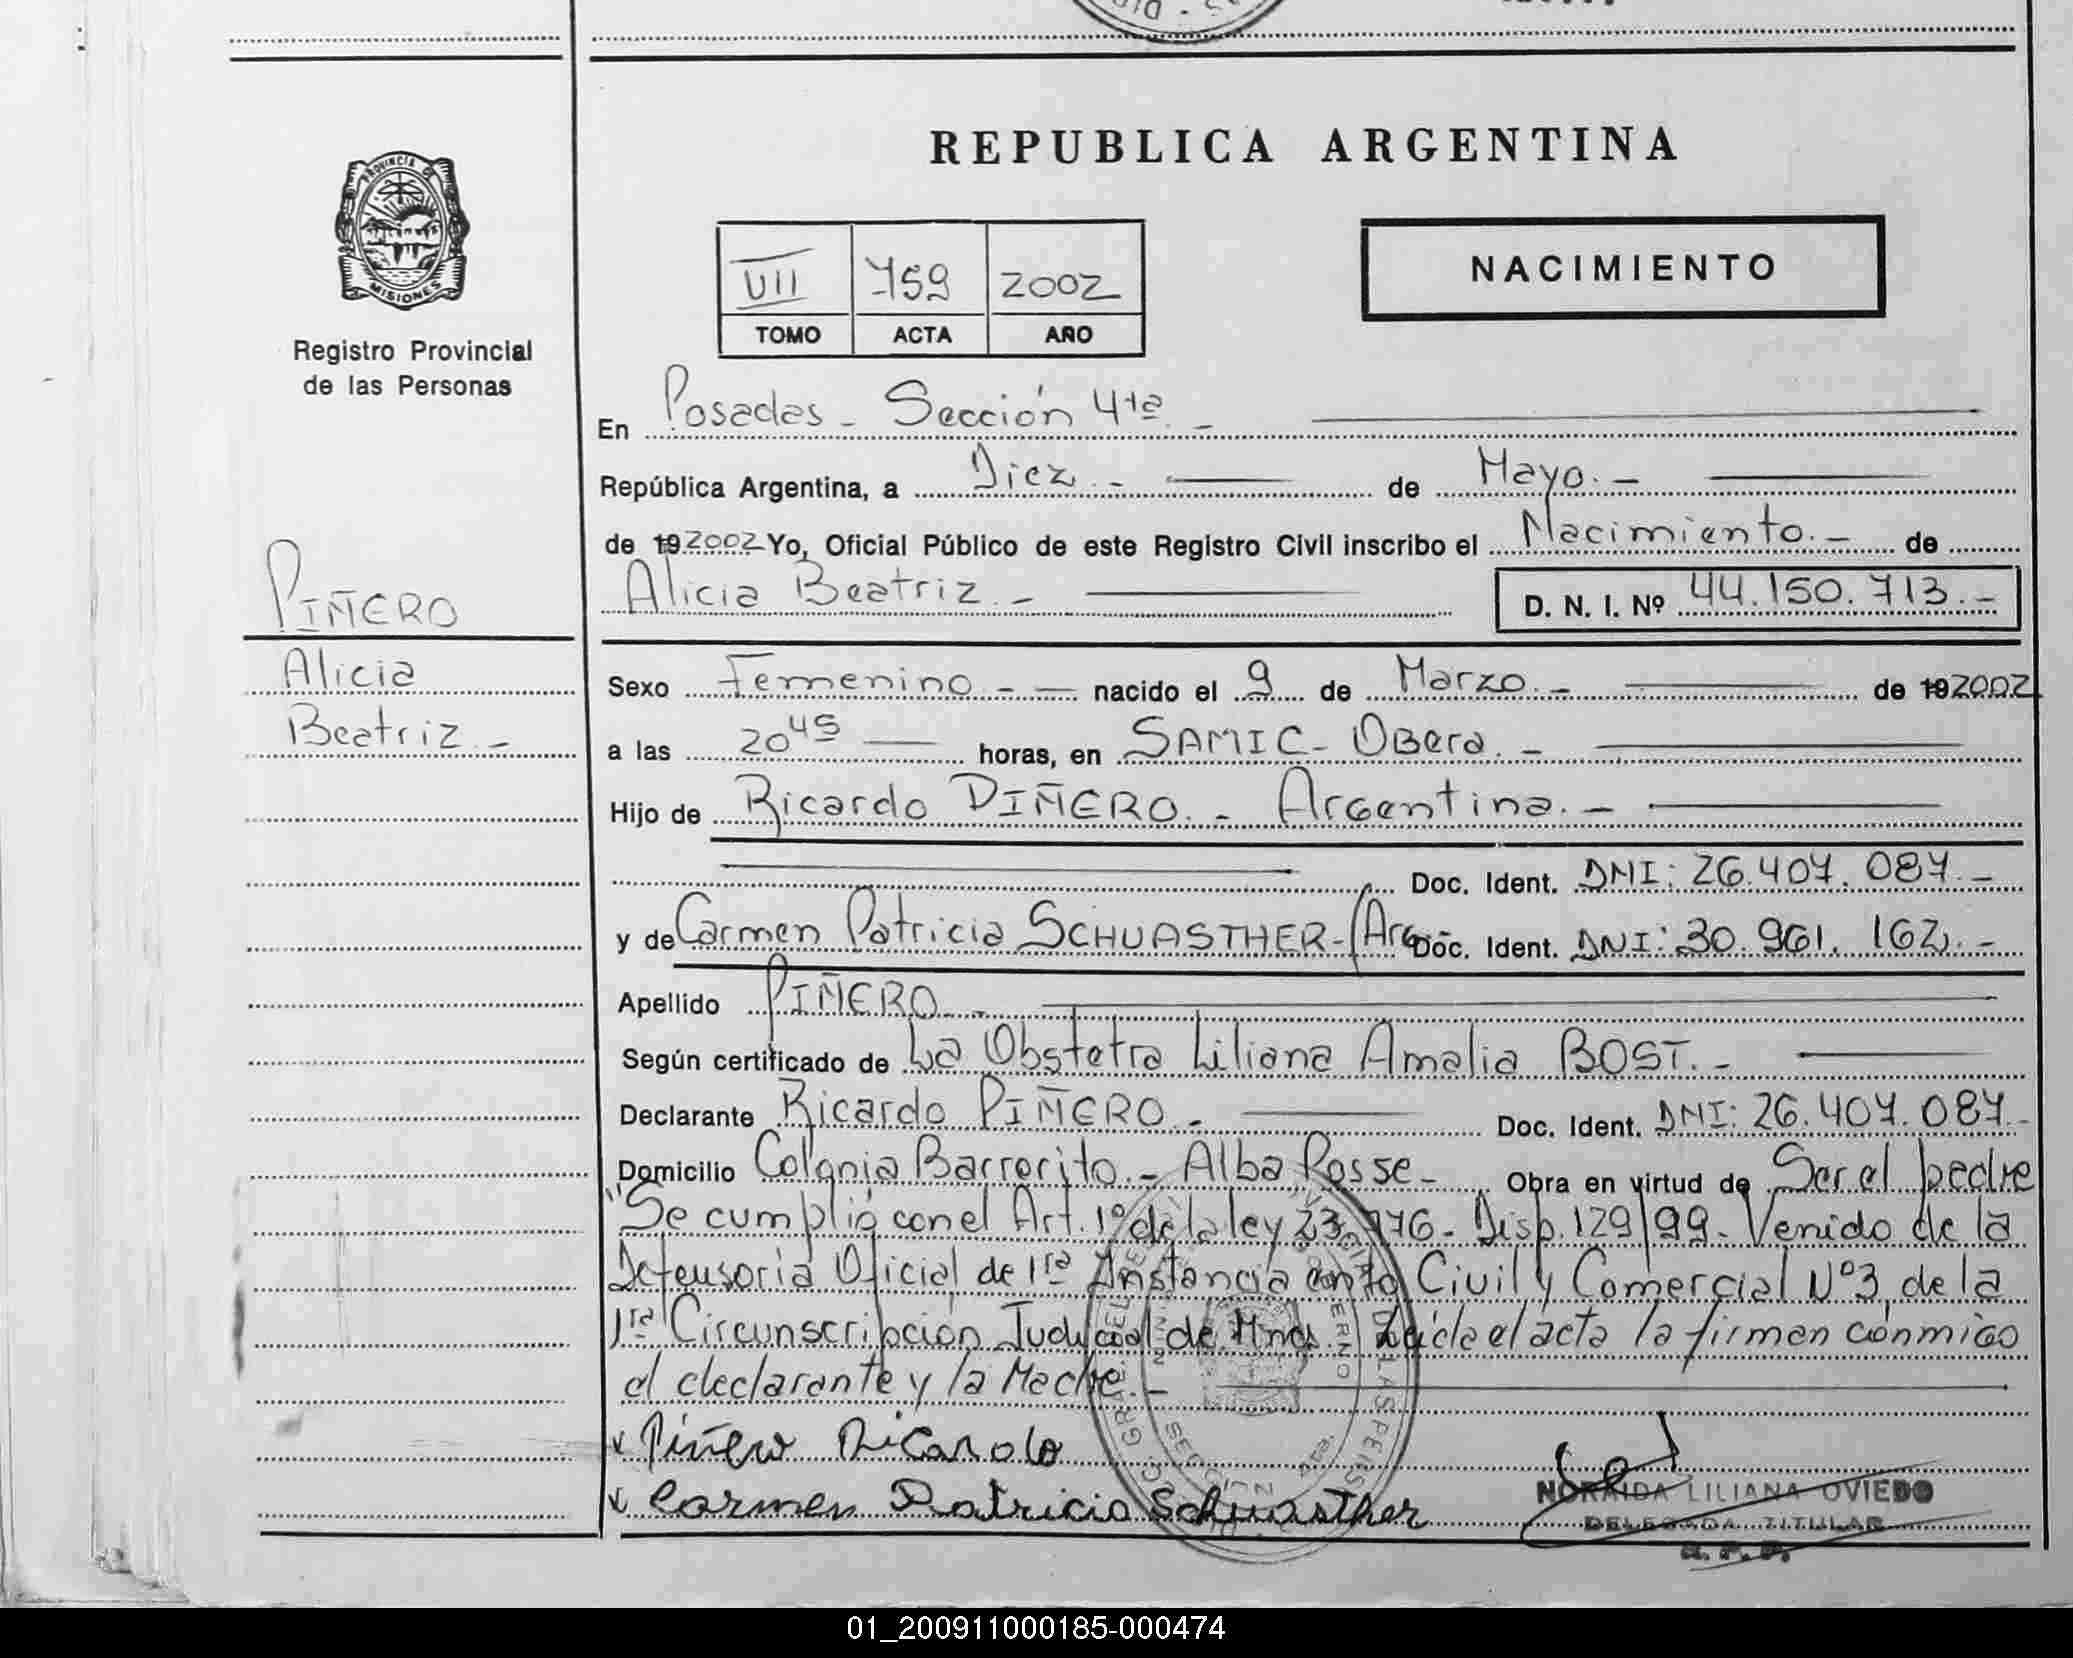 REPUBLICA ARGENTINA
PROVINCIA DE
MISIONES
Registro Provincial
de las Personas
VII 759 2002
TOMO ACTA AÑO
NACIMIENTO
En Posadas - Sección 4ta. -
República Argentina, a Diez. - de Mayo. -
de 19 2002 Yo, Oficial Público de este Registro Civil inscribo el Nacimiento. - de
Alicia Beatriz. - D. N. I. Nº 44.150.713. -
PIÑERO
Alicia
Beatriz. -
Sexo Femenino. - nacido el 9 de Marzo. - de 19 2002
a las 20 45 horas, en SAMIC - Obera. -
Hijo de Ricardo PIÑERO. - Argentina. -
Doc. Ident. DNI: 26.407.087. -
y de Carmen Patricia SCHUASTHER - (Arg. Doc. Ident. DNI: 30.961.162. -
Apellido PIÑERO. -
Según certificado de La Obstetra Liliana Amalia BOST. -
Declarante Ricardo PIÑERO. - Doc. Ident. DNI: 26.407.087. -
Domicilio Colonia Barrerito. - Alba Posse - Obra en virtud de Ser el padre
"Se cumplió con el Art. 1º de la ley 23.776 - Disp. 129/99 - Venido de la
Defensoria Oficial de 1ra Instancia en lo Civil y Comercial Nº 3, de la
1ra Circunscripción Judicial de Mnes. Leida el acta la firman conmigo
el declarante y la Madre. -
Piñero Ricardo
Carmen Patricia Schuasther
NORAIDA LILIANA OVIEDO
DELEGADA TITULAR
01_200911000185-000474